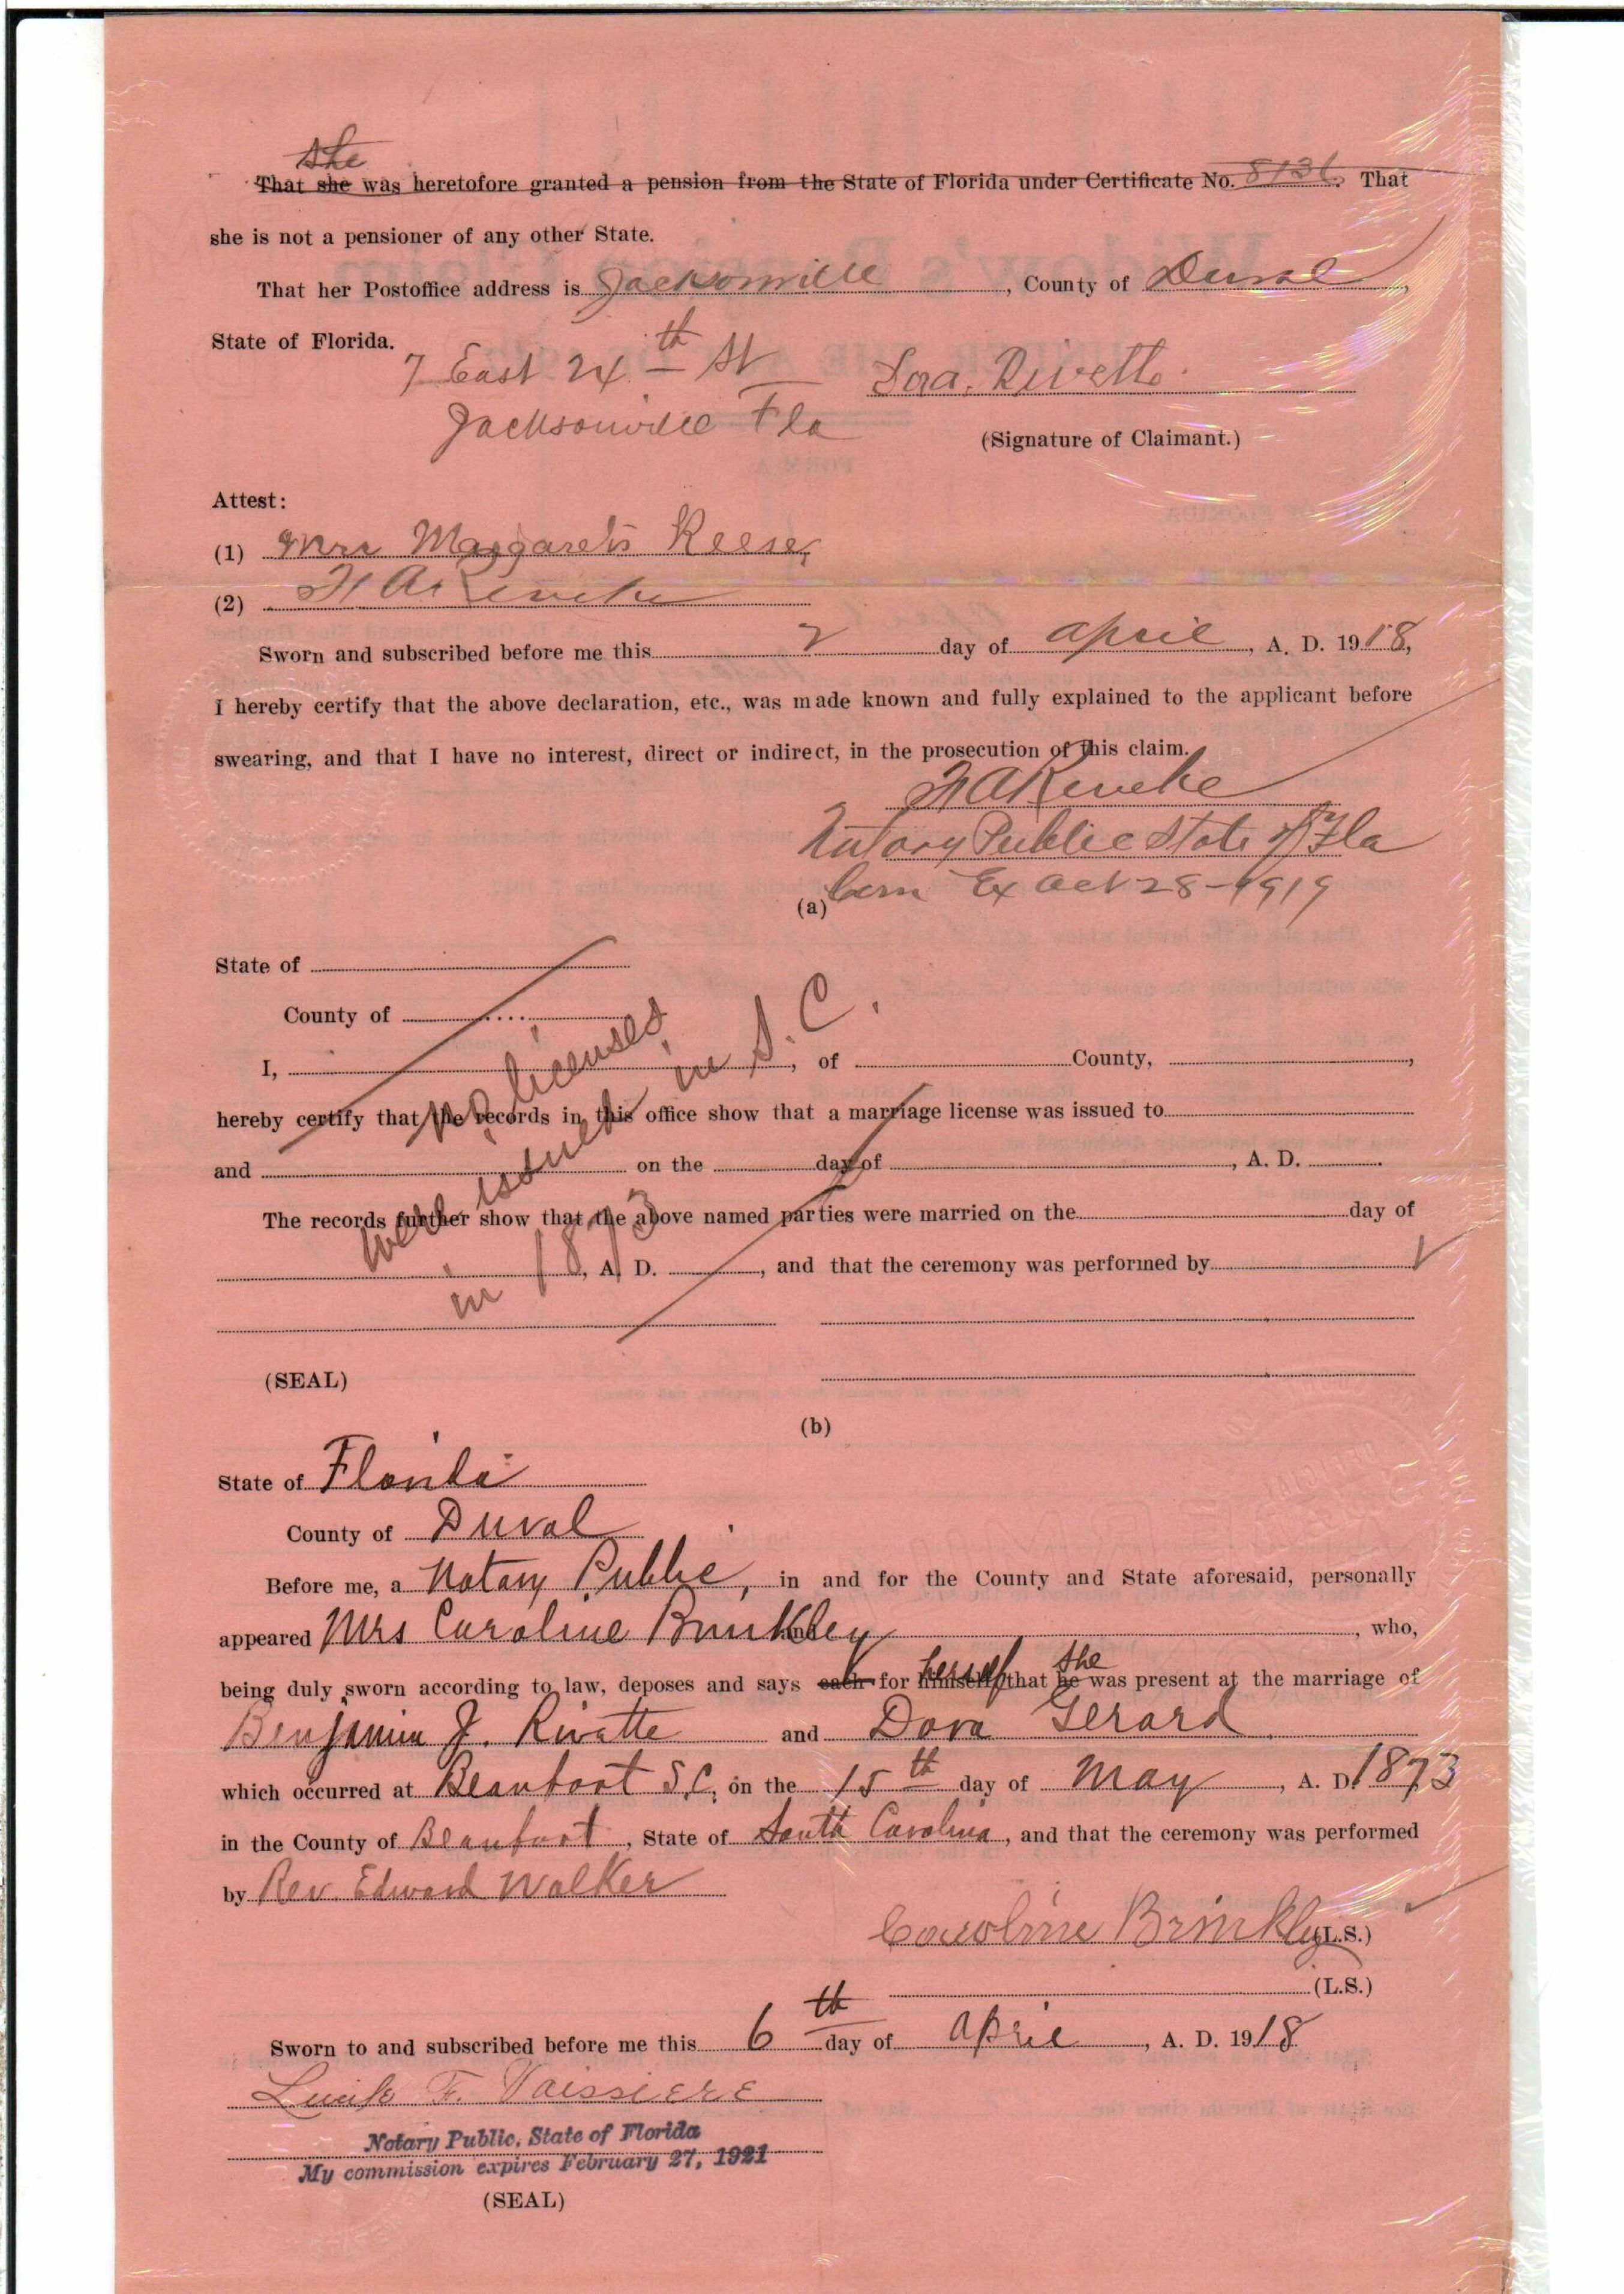 she
That she was heretofore granted a pension from the State of Florida under Certificate No. 8136. That
she is not a pensioner of any other State.
That her Postoffice address is Jacksonville, County of Duval,
State of Florida.
7 East 24th St
Jacksonville Fla
Rivette
(Signature of Claimant.)
Attest:
(1) Mrs Reese
(2)
Sworn and subscribed before me this 2 day of April, A. D. 1918,
I hereby certify that the above declaration, etc., was made known and fully explained to the applicant before
swearing, and that I have no interest, direct or indirect, in the prosecution of this claim.
Notary Public State of Fla
Com Ex Oct 28-1919
(a)
State of
County of
I, , of County, ,
hereby certify that the records in this office show that a marriage license was issued to
and on the day of , A. D.
The records further show that the above named parties were married on the day of
, A. D. , and that the ceremony was performed by
No licenses
were issued in S.C.
in 1873
(SEAL)
(b)
State of Florida
County of Duval
Before me, a Notary Public, in and for the County and State aforesaid, personally
appeared Mrs Caroline Brinkley and , who,
being duly sworn according to law, deposes and says each for himself, herself that he she was present at the marriage of
Benjamin J. Rivette and Dora Gerard
which occurred at Beaufort S.C, on the 15th day of May, A. D. 1873
in the County of Beaufort, State of South Carolina, and that the ceremony was performed
by Rev. Edward Walker
Caroline Brinkley (L.S.)
(L.S.)
Sworn to and subscribed before me this 6th day of April, A. D. 1918
F. Vaissiere
Notary Public, State of Florida
My commission expires February 27, 1921
(SEAL)